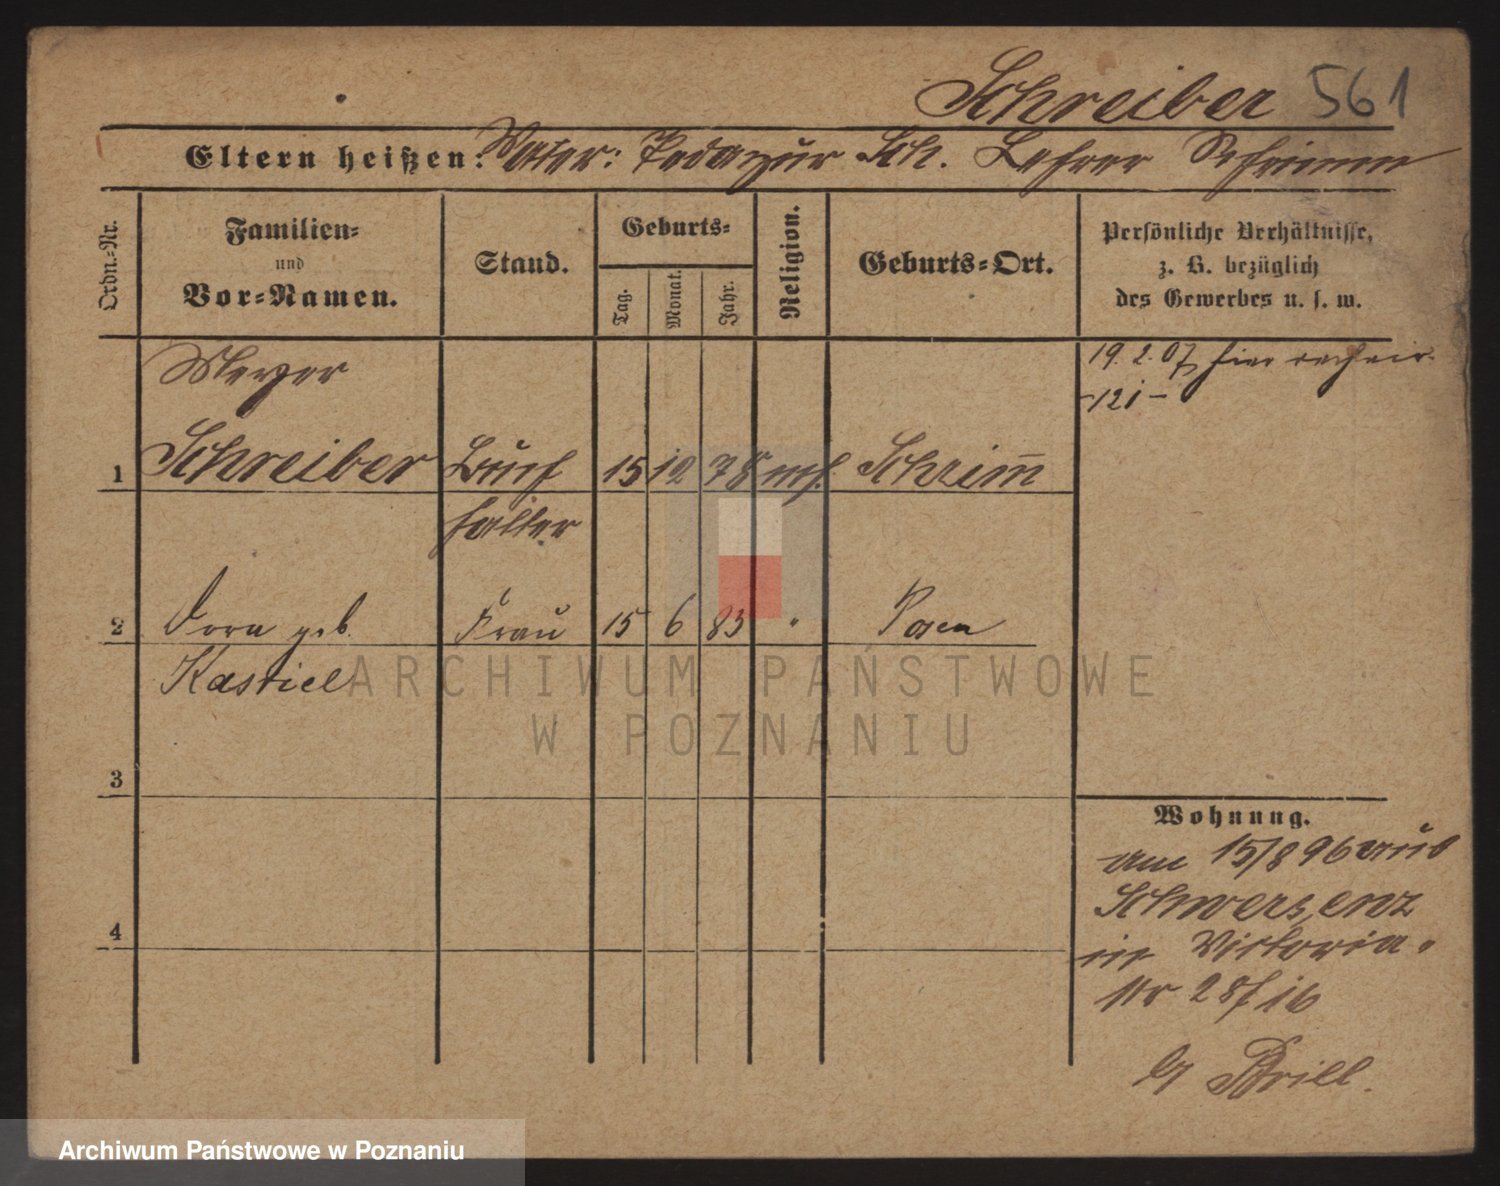 Schreiber 561
Eltern heißen: Vater: Sch. Lehrer Schrimm
Ordn.-Nr.
Familien-
und
Vor-Namen.
Stand.
Geburts-
Tag.
Monat.
Jahr.
Religion.
Geburts-Ort.
Persönliche Verhältnisse,
z. B. bezüglich
des Gewerbes u. s. w.
Meyer
19. 2. 07 hier
-121-
1 Schreiber Buch 15 12 78 mos. Schrimm
halter
2 Dora geb. Frau 15 6 83 " Posen
Kastiel
ARCHIWUM PAŃSTWOWE
W POZNANIU
3
Wohnung.
am 15/8 96 aus
Schwersenz
in Victoria-
Nr 28/16
b/ Brill.
4
Archiwum Państwowe w Poznaniu